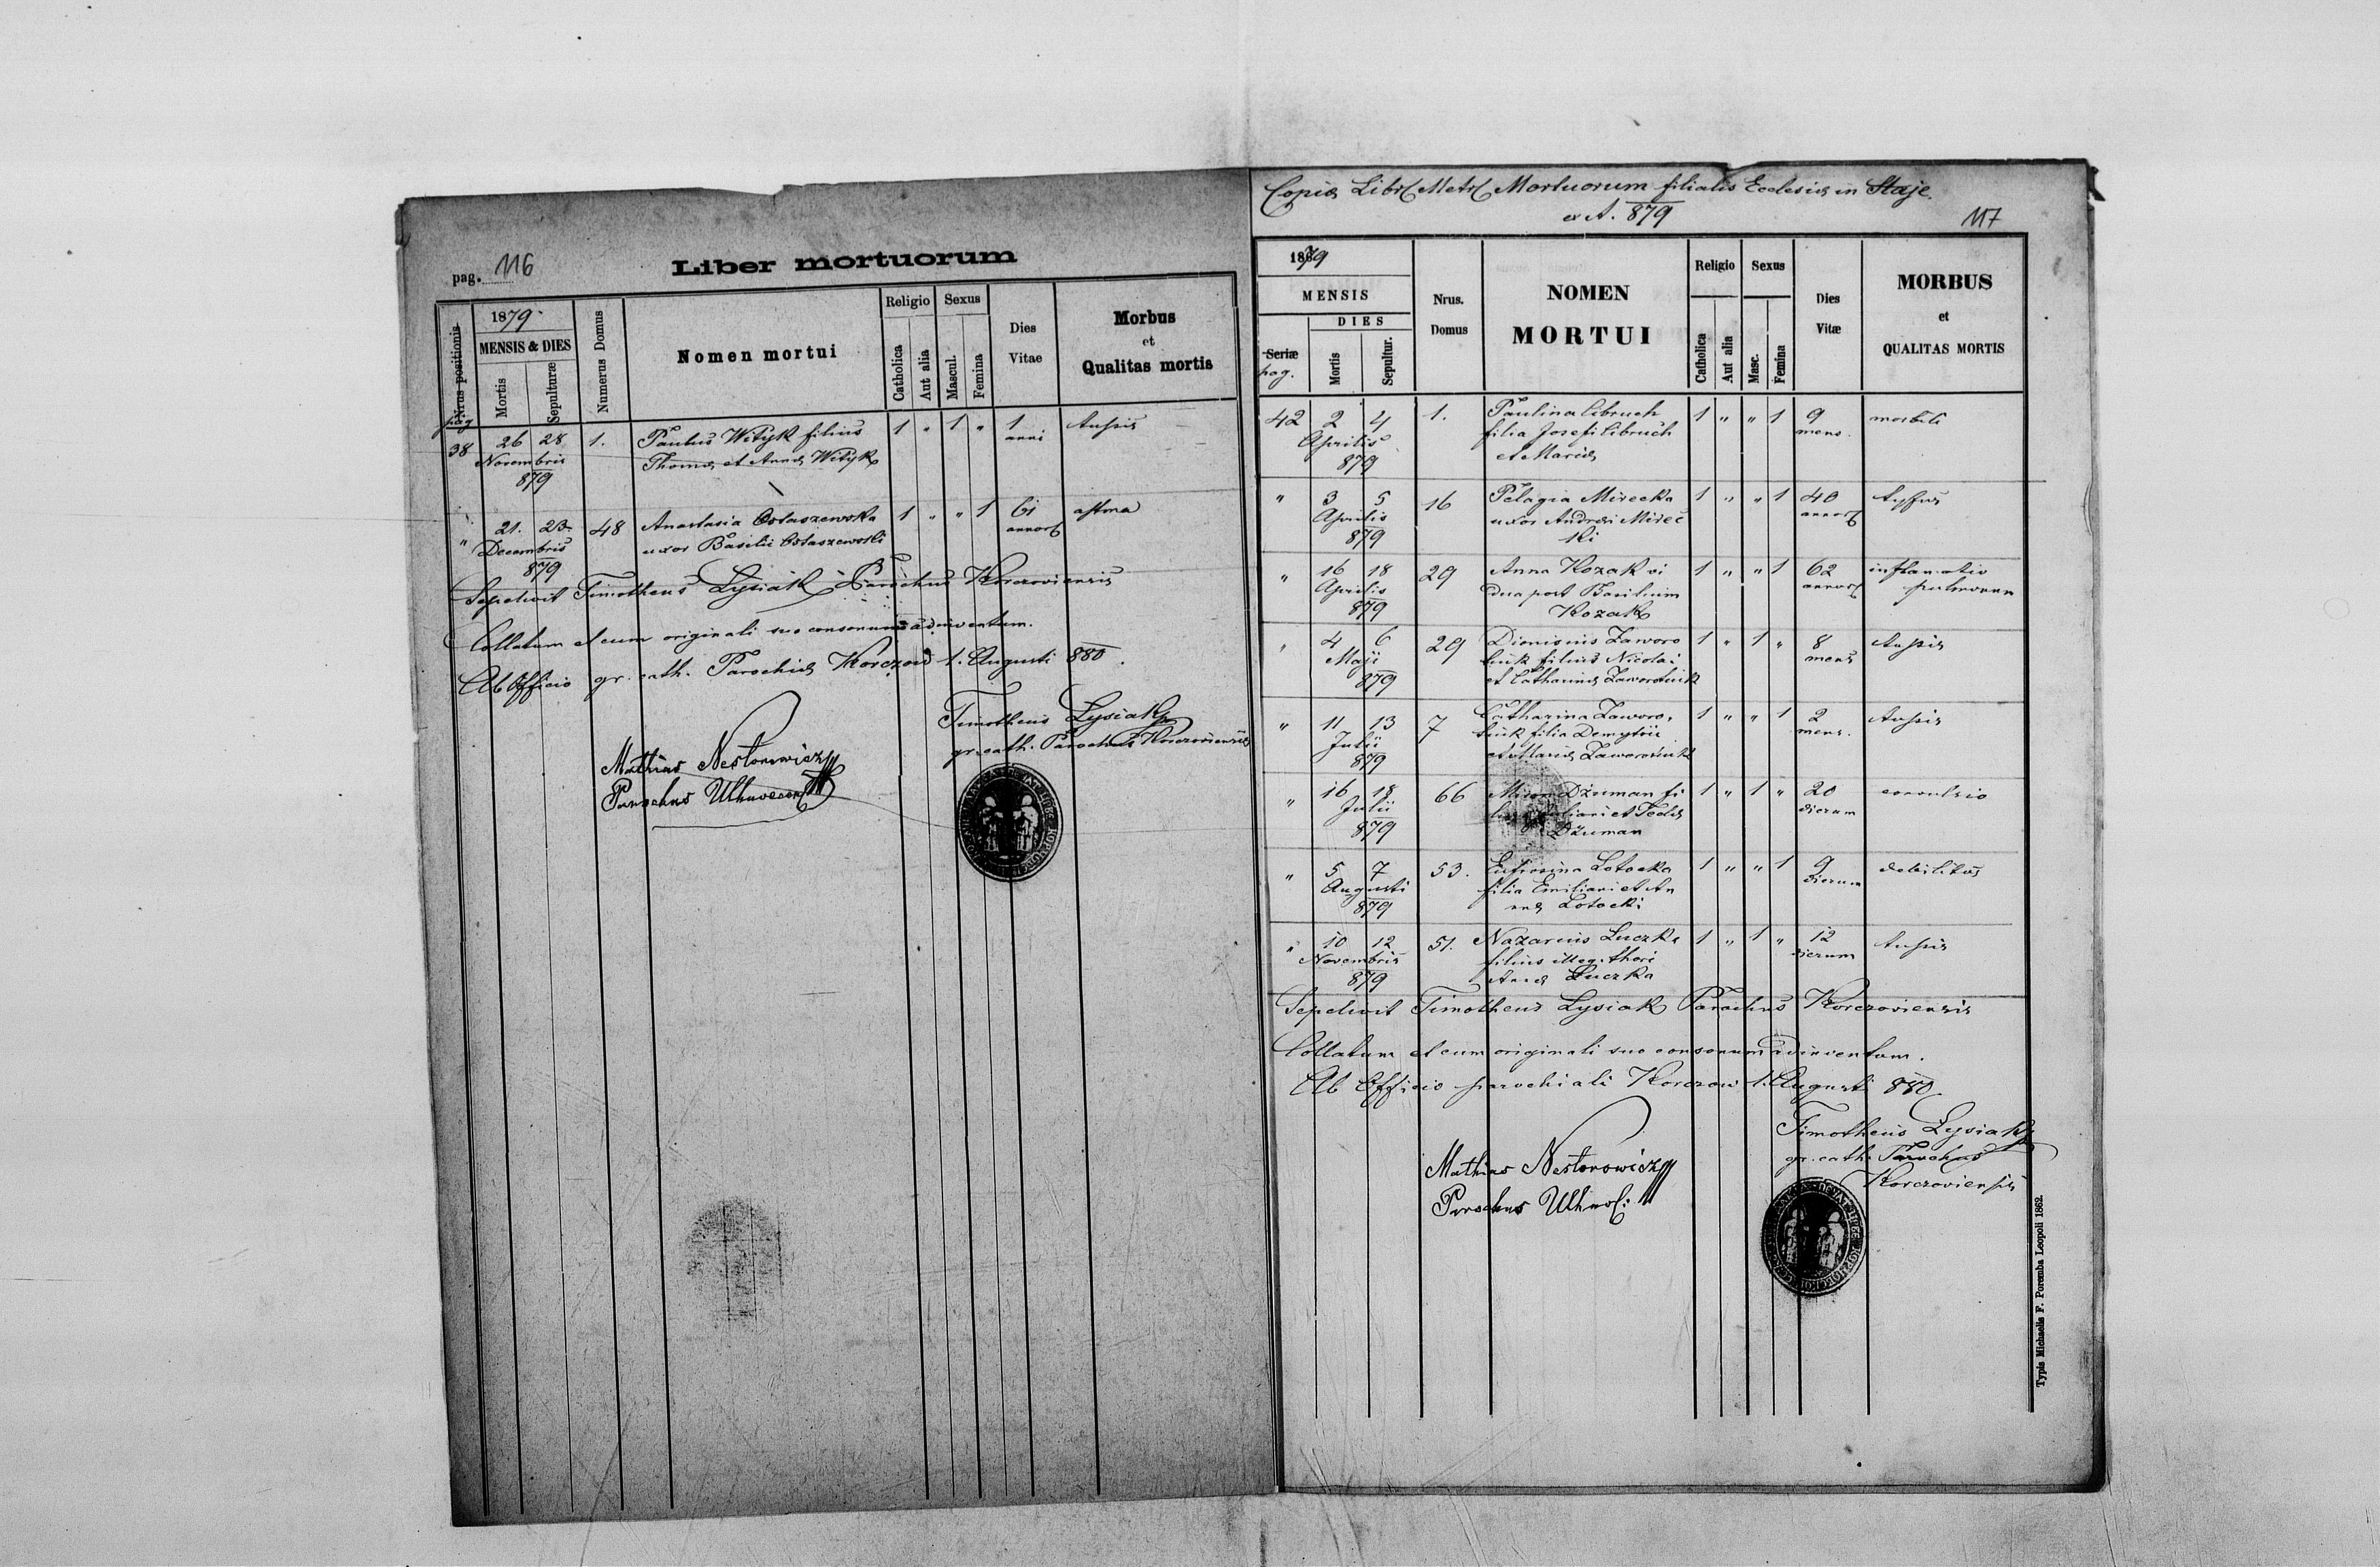 pag. 116
Liber mortuorum
Nrus positionis
pag
1879
MENSIS & DIES
Mortis
Sepulturæ
Numerus Domus
Nomen mortui
Religio
Catholica
Aut alia
Sexus
Mascul.
Femina
Dies
Vitae
Morbus
et
Qualitas mortis
38 26 28 1. Paulus Wityk filius 1 " 1 " 1 tussis
Novembris Thomæ et Annæ Wityk anni
879
" 21. 23. 48 Anastasia Ostaszewska 1 " " 1 61 astma
Decembris uxor Basilii Ostaszewski annor
879
Sepelivit Timotheus Lysiak Parochus Korczoviensis
Collatum et cum originali suo consonum adinventum.
Ab Officio gr. cath. Parochiæ Korczow 1. Augusti 880.
Timotheus Lysiak
gr. cath. Parochus Korczoviensis
Mathias Nestorowicz
Parochus
Copia Libr Metr Mortuorum filialis Ecclesiæ in Staje
ex A. 879
117
1879
MENSIS
DIES
Seriæ
pag.
Mortis
Sepultur.
Nrus.
Domus
NOMEN
MORTUI
Religio
Catholica
Aut alia
Sexus
Masc.
Femina
Dies
Vitæ
MORBUS
et
QUALITAS MORTIS
42 2 4 1. Paulina Cibruch 1 " " 1 9 morbili
Aprilis filia Josefi Cibruch mens.
879 et Mariæ
" 3 5 16 Pelagia Mirecka 1 " " 1 40 typhus
Aprilis uxor Andreæ Mirec annor
879 ki
" 16 18 29 Anna Kozak vi 1 " " 1 62 inflamatio
Aprilis dua post Basilium annor pulmonum
879 Kozak
" 4 6 29 Dionisius Zaworo 1 " 1 " 8 tussis
Maji filius Nicolai mens
879 et Catharinæ
" 11 13 7 Catharina Zaworo 1 " " 1 2 tussis
Julii filia mens.
879 et Mariæ
" 16 18 66 Miron Dżuman fi 1 " 1 " 20 convulsio
Julii dierum
879 Dżuman
" 5 7 53. Eufrosina Lotocka 1 " " 1 9 debilitas
Augusti filia Emiliani et An dierum
879 næ Lotocki
" 10 12 51. Nazarius Luczka 1 " 1 " 12 tussis
Novembris filius illeg. thori dierum
879 Annæ Luczka
Sepelivit Timotheus Lysiak Parochus Korczoviensis
Collatum et cum originali suo consonum adinventum.
Ab Officio parochiali Korczow 1. Augusti 880
Timotheus Lysiak
gr. cath. Parochus
Korczoviensis
Mathias Nestorowicz
Parochus
Typis Michaelis F. Poremba Leopoli 1862.